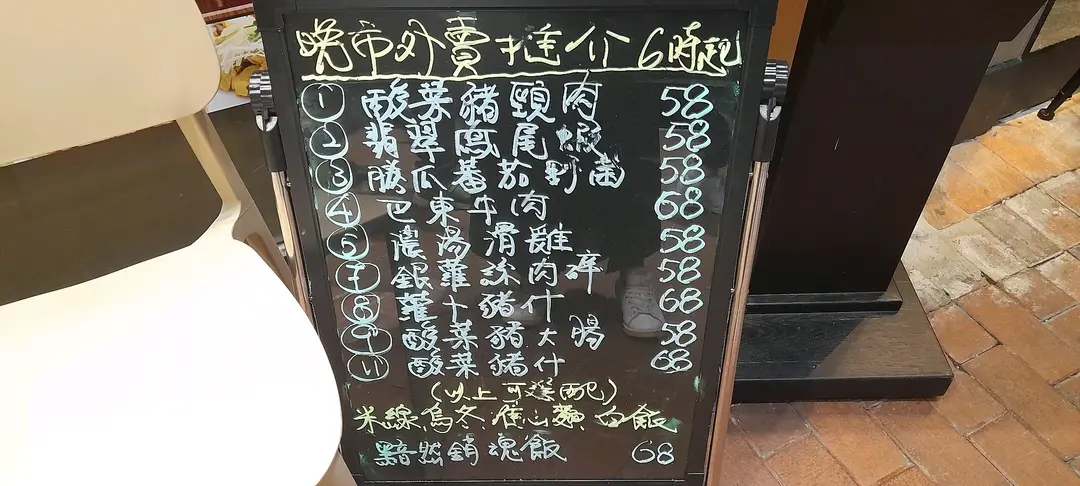 晚市外賣推介 6時起
① 酸菜豬頸肉 58
② 翡翠鳳尾蝦 58
③ 勝瓜蕃茄野菌 58
④ 巴東牛肉 68
⑤ 濃湯滑雞 58
⑦ 銀蘿絲肉碎 58
⑧ 蘿卜豬什 68
⑨ 酸菜豬大腸 58
⑪ 酸菜豬什 68
(以上可選配)
米線烏冬 麵 白飯
黯然銷魂飯 68